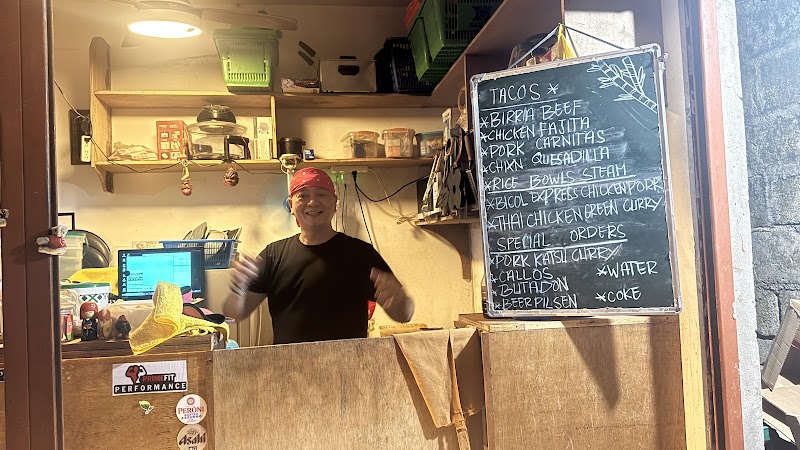 TACOS *
*BIRRIA BEEF
*CHICKEN FAJITA
*PORK CARNITAS
*CHIXN QUESADILLA
*RICE BOWLS STEAM
*BICOL EXPRESS CHICKEN PORK
*THAI CHICKEN GREEN CURRY
SPECIAL ORDERS
*PORK KATSU CURRY
*CALLOS *WATER
*BUTADON
*BEER PILSEN *COKE
PRIMEFIT
PERFORMANCE
PERONI
Asahi